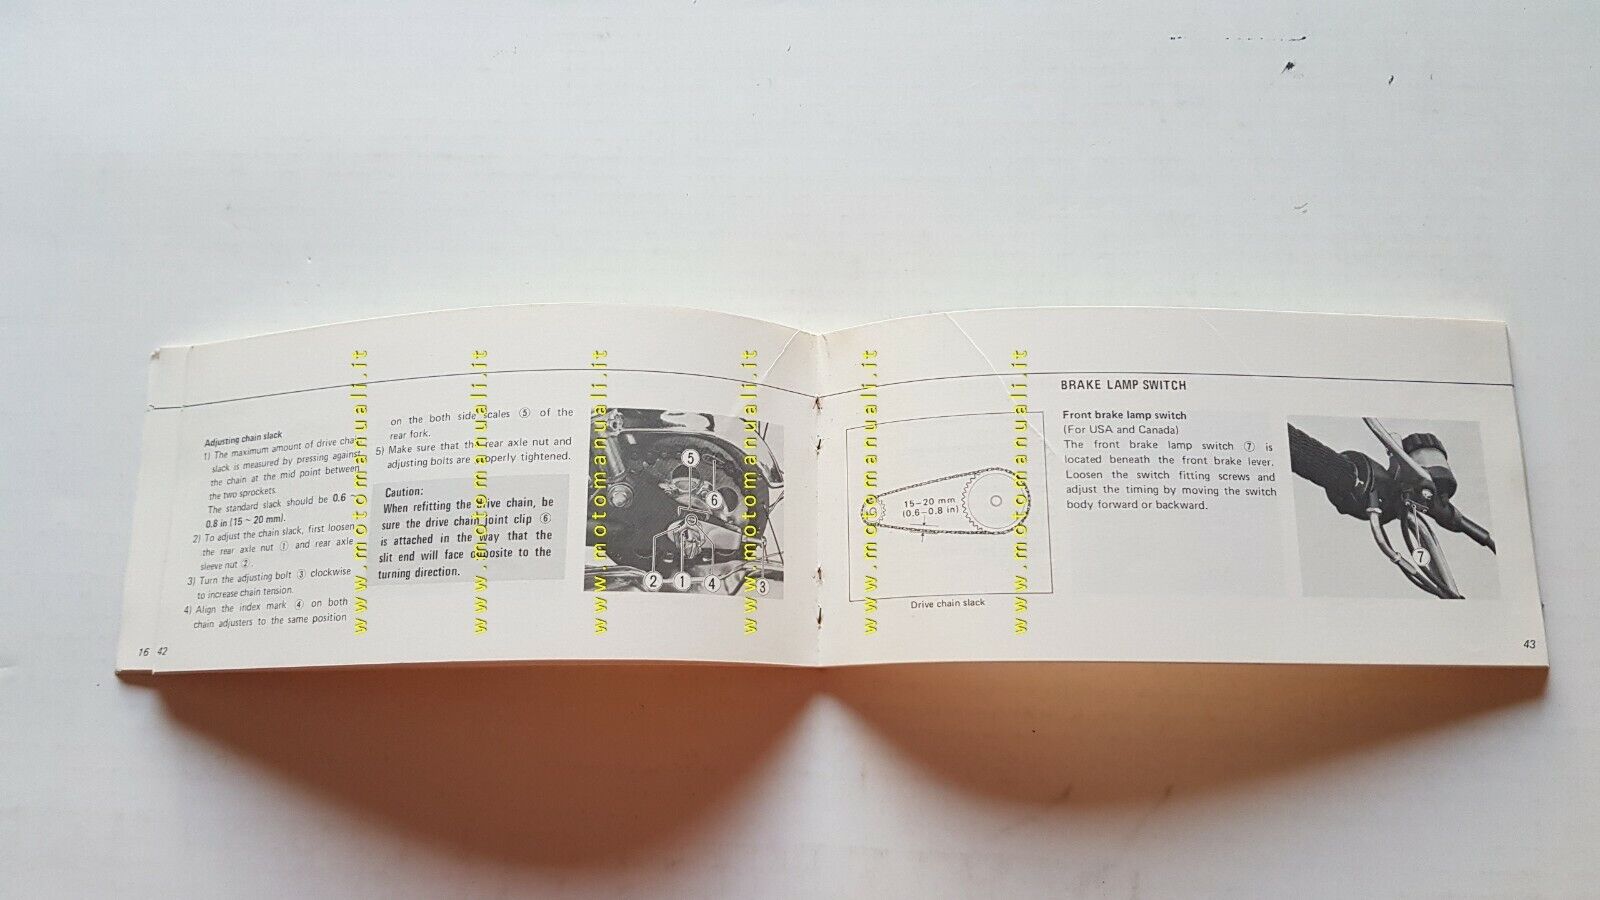 Adjusting chain slack
1) The maximum amount of drive chain
slack is measured by pressing against
the chain at the mid point between
the two sprockets.
The standard slack should be 0.6 ~
0.8 in (15 ~ 20 mm).
2) To adjust the chain slack, first loosen
the rear axle nut ① and rear axle
sleeve nut ②.
3) Turn the adjusting bolt ③ clockwise
to increase chain tension.
4) Align the index mark ④ on both
chain adjusters to the same position
16 42
on the both side scales ⑤ of the
rear fork.
5) Make sure that the rear axle nut and
adjusting bolts are properly tightened.
Caution:
When refitting the drive chain, be
sure the drive chain joint clip ⑥
is attached in the way that the
slit end will face opposite to the
turning direction.
⑤
⑥
② ① ④ ③
15–20 mm
(0.6–0.8 in)
Drive chain slack
BRAKE LAMP SWITCH
Front brake lamp switch
(For USA and Canada)
The front brake lamp switch ⑦ is
located beneath the front brake lever.
Loosen the switch fitting screws and
adjust the timing by moving the switch
body forward or backward.
⑦
43
www.motomanuali.it
www.motomanuali.it
www.motomanuali.it
www.motomanuali.it
www.motomanuali.it
www.motomanuali.it